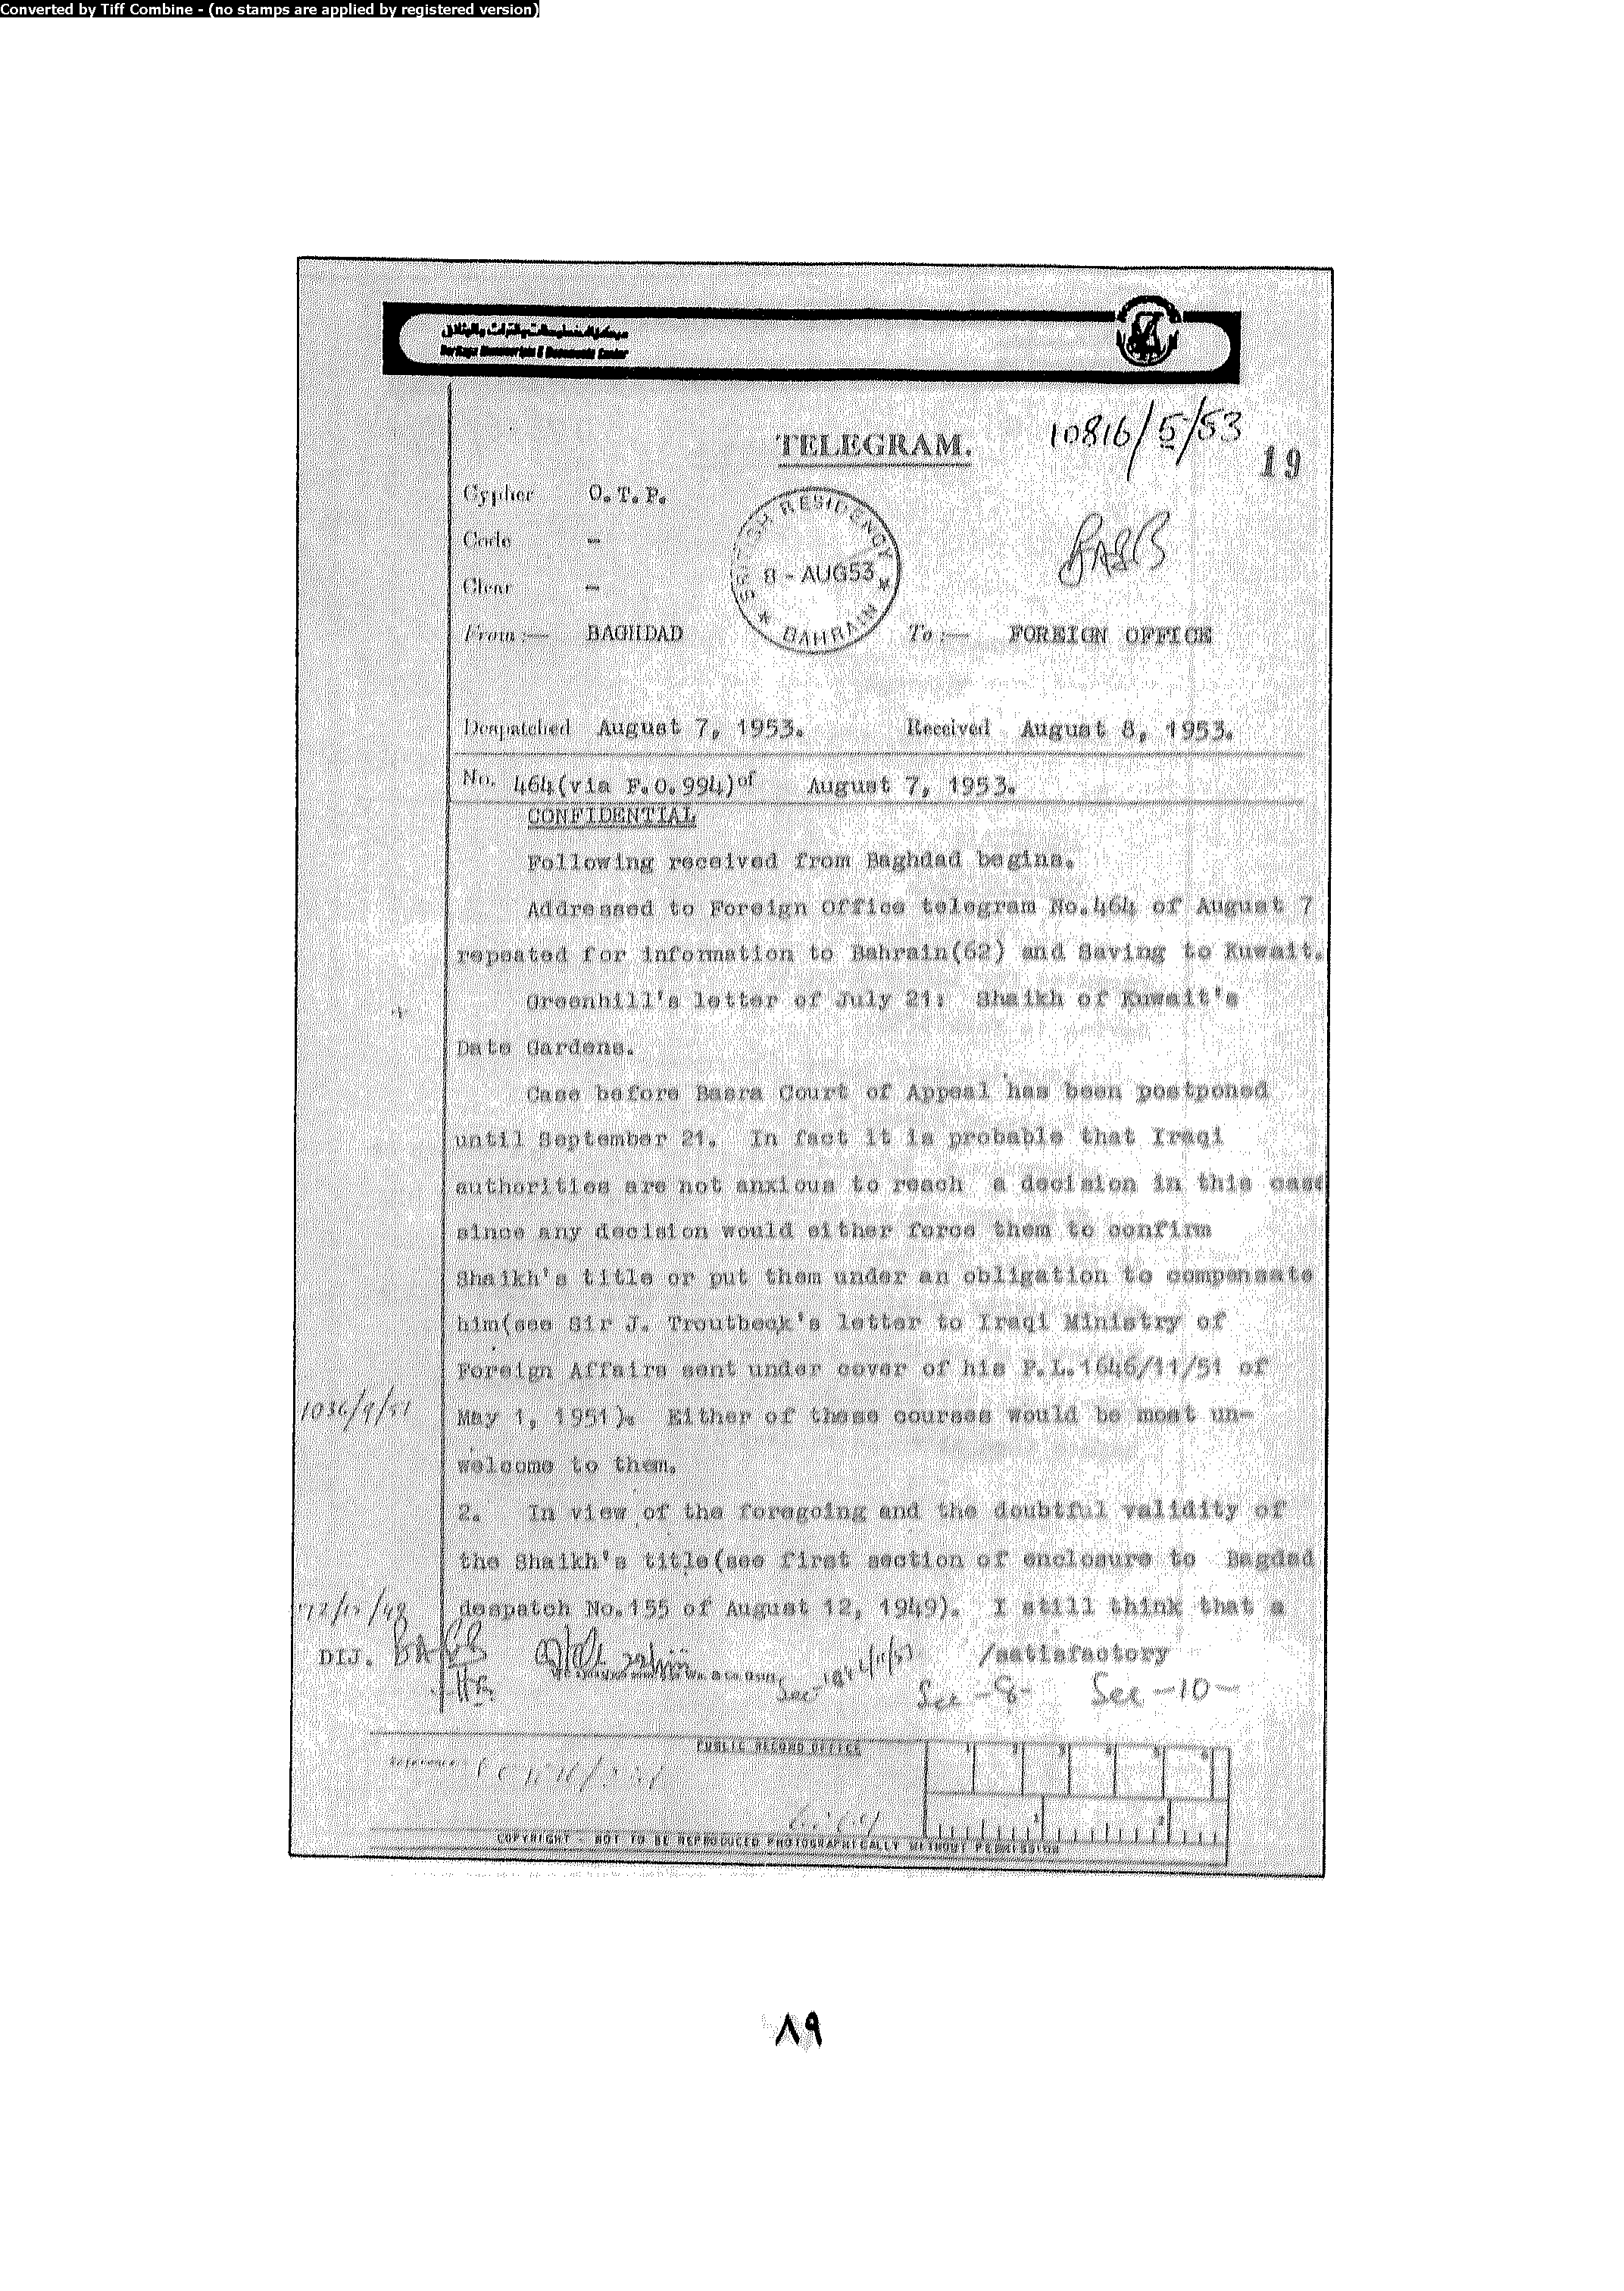 Converted by Tiff Combine - (no stamps are applied by registered version)
Heritage Manuscripts & Documents Center
10816/5/53
TELEGRAM.
19
Cypher O.T.P.
Code -
Clear -
BRITISH RESIDENCY
8 - AUG53
BAHRAIN
From :— BAGHDAD To :— FOREIGN OFFICE
Despatched August 7, 1953. Received August 8, 1953.
No. 464(via F.O.994)of August 7, 1953.
CONFIDENTIAL
Following received from Baghdad begins.
Addressed to Foreign Office telegram No.464 of August 7
repeated for information to Bahrain(62) and Saving to Kuwait.
Greenhill's letter of July 21: Shaikh of Kuwait's
Date Gardens.
Case before Basra Court of Appeal has been postponed
until September 21. In fact it is probable that Iraqi
authorities are not anxious to reach a decision in this case
since any decision would either force them to confirm
Shaikh's title or put them under an obligation to compensate
him(see Sir J. Troutbeck's letter to Iraqi Ministry of
Foreign Affairs sent under cover of his P.L.1646/11/51 of
1036/9/51
May 1, 1951). Either of these courses would be most un-
welcome to them.
2. In view of the foregoing and the doubtful validity of
the Shaikh's title(see first section of enclosure to Bagdad
despatch No.155 of August 12, 1949). I still think that a
/satisfactory
DIJ.
Sec -8- Sec -10-
PUBLIC RECORD OFFICE
Reference
1 2 3 4 5 6
1 2
COPYRIGHT - NOT TO BE REPRODUCED PHOTOGRAPHICALLY WITHOUT PERMISSION
٨٩